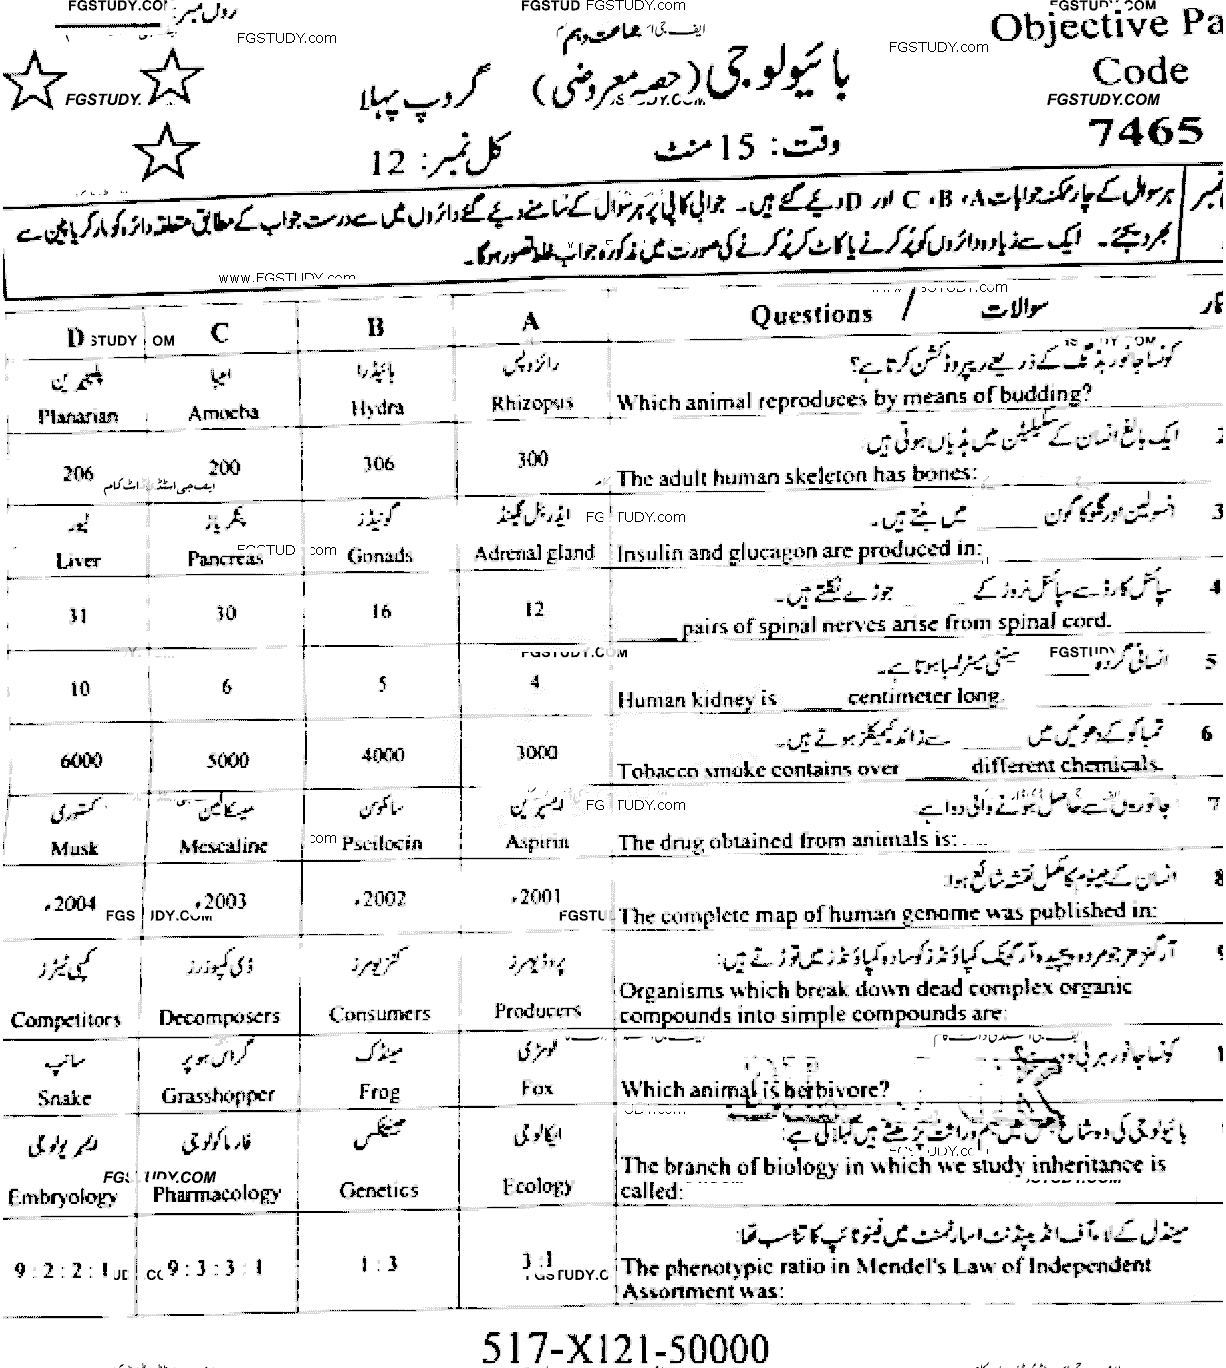 FGSTUDY.COM
رول نمبر
FGSTUDY.com
FGSTUD FGSTUDY.com
جماعت دہم
FGSTUDY.com
FGSTUDY.COM
Objective Pa
Code
FGSTUDY.COM
7465
بائیولوجی (حصہ معروضی) گروپ پہلا
FGSTUDY.
وقت: 15 منٹ
کل نمبر: 12
ہر سوال کے چار ممکنہ جوابات A، B، C اور D دیئے گئے ہیں۔ جوابی کاپی پر ہر سوال کے سامنے دیئے گئے دائروں میں سے درست جواب کے مطابق متعلقہ دائرہ کو مارکر یا پین سے
بھر دیجئے۔ ایک سے زیادہ دائروں کو پُر کرنے یا کاٹ کر پُر کرنے کی صورت میں مذکورہ جواب غلط تصور ہوگا۔
www.FGSTUDY.com
D C B A Questions / سوالات
کونسا جانور بڈنگ کے ذریعے ریپروڈکشن کرتا ہے؟
پلینیرین امیبا ہائیڈرا رائزوپس
Planarian Amoeba Hydra Rhizopus Which animal reproduces by means of budding?
ایک بالغ انسان کے سکیلیٹن میں ہڈیاں ہوتی ہیں:
206 200 306 300 The adult human skeleton has bones:
ایف جی اسٹڈی ڈاٹ کام
انسولین اور گلوکاگون ____ میں بنتے ہیں۔ 3
لیور پنکریاز گونیڈز ایڈرینل گلینڈ FG TUDY.com
Liver Pancreas Gonads Adrenal gland Insulin and glucagon are produced in:
سپائنل کارڈ سے سپائنل نروز کے ____ جوڑے نکلتے ہیں۔ 4
31 30 16 12 ____ pairs of spinal nerves arise from spinal cord.
FGSTUDY.COM
انسانی گردہ ____ سینٹی میٹر لمبا ہوتا ہے۔ 5
10 6 5 4 Human kidney is ____ centimeter long.
تمباکو کے دھوئیں میں ____ سے زائد کیمیکلز ہوتے ہیں۔ 6
6000 5000 4000 3000 Tobacco smoke contains over ____ different chemicals.
جانوروں سے حاصل ہونے والی دوا ہے: 7
کستوری میسکالین سائلوسن ایسپرین FG TUDY.com
Musk Mescaline Pscilocin Aspirin The drug obtained from animals is:
انسان کے جینوم کا مکمل نقشہ شائع ہوا: 8
2004ء 2003ء 2002ء 2001ء The complete map of human genome was published in:
آرگنزمز جو مردہ پیچیدہ آرگینک کمپاؤنڈز کو سادہ کمپاؤنڈز میں توڑتے ہیں: 9
کمپی ٹیٹرز ڈی کمپوزرز کنزیومرز پروڈیوسرز
Competitors Decomposers Consumers Producers Organisms which break down dead complex organic
compounds into simple compounds are:
کونسا جانور ہربی وور ہے؟
سانپ گراس ہوپر مینڈک لومڑی
Snake Grasshopper Frog Fox Which animal is herbivore?
بائیولوجی کی وہ شاخ جس میں ہم وراثت پڑھتے ہیں کہلاتی ہے:
ایمبریولوجی فارماکولوجی جینیٹکس ایکالوجی
Embryology Pharmacology Genetics Ecology The branch of biology in which we study inheritance is
called:
مینڈل کے لاء آف انڈیپنڈنٹ اسارٹمنٹ میں فینوٹائپ کا تناسب تھا:
9 : 2 : 2 : 1 9 : 3 : 3 : 1 1 : 3 3 : 1 The phenotypic ratio in Mendel's Law of Independent
Assortment was:
517-X121-50000